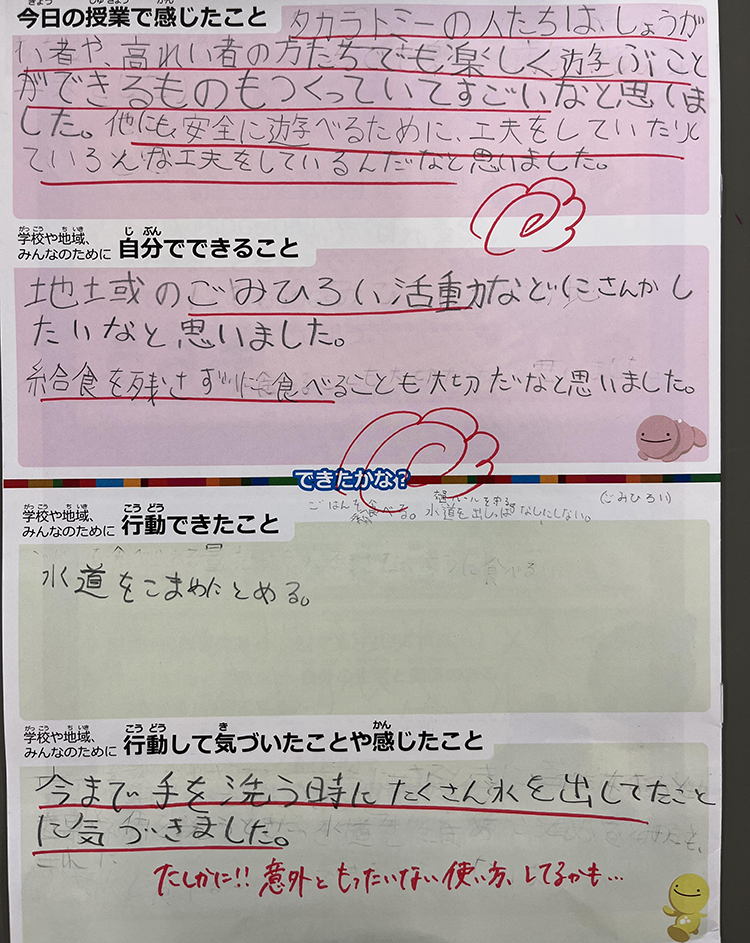 今日の授業で感じたこと
タカラトミーの人たちは、しょうが
い者や、高れい者の方たちでも楽しく遊ぶこと
ができるものもつくっていてすごいなと思いま
した。他にも、安全に遊べるために、工夫をしていたりと
ていろんな工夫をしているんだなと思いました。
学校や地域、
みんなのために 自分でできること
地域のごみひろい活動などにさんかし
たいなと思いました。
給食を残さずに食べることも大切だなと思いました。
できたかな?
学校や地域、
みんなのために 行動できたこと
(ごみひろい)
ごはんを食べる。水道を出しっぱなしにしない。
水道をこまめにとめる。
学校や地域、
みんなのために 行動して気づいたことや感じたこと
今まで手を洗う時にたくさん水を出してたこと
に気づきました。
たしかに!! 意外ともったいない使い方、してるかも…